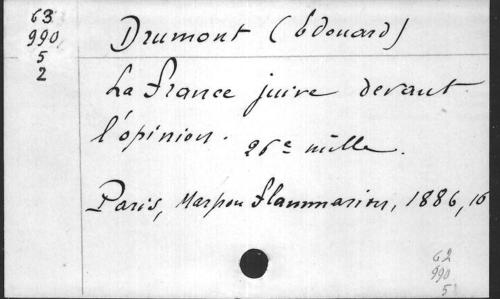 63
990
5
2
Drumont (Edouard)
La France juive devant
l'opinion. 26e mille.
Paris, Marpon Flammarion, 1886, 16
62
990
5